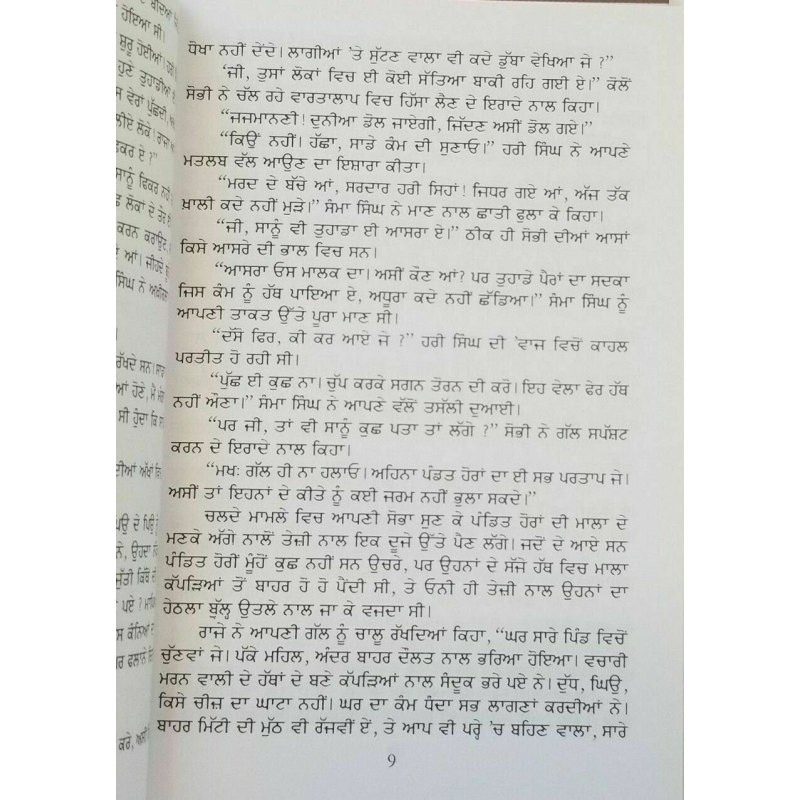 ਧੋਖਾ ਨਹੀਂ ਦੇਂਦੇ। ਲਾਗੀਆਂ 'ਤੇ ਸੁੱਟਣ ਵਾਲਾ ਵੀ ਕਦੇ ਡੁੱਬਾ ਵੇਖਿਆ ਜੇ ?”
‘ਜੀ, ਤੁਸਾਂ ਲੋਕਾਂ ਵਿਚ ਈ ਕੋਈ ਸੱਤਿਆ ਬਾਕੀ ਰਹਿ ਗਈ ਏ।” ਕੋਲੋਂ
ਸੋਭੀ ਨੇ ਚੱਲ ਰਹੇ ਵਾਰਤਾਲਾਪ ਵਿਚ ਹਿੱਸਾ ਲੈਣ ਦੇ ਇਰਾਦੇ ਨਾਲ ਕਿਹਾ।
“ਜਜਮਾਨਣੀ! ਦੁਨੀਆ ਡੋਲ ਜਾਏਗੀ, ਜਿੱਦਣ ਅਸੀਂ ਡੋਲ ਗਏ।”
“ਕਿਉਂ ਨਹੀਂ। ਹੱਛਾ, ਸਾਡੇ ਕੰਮ ਦੀ ਸੁਣਾਓ।” ਹਰੀ ਸਿੰਘ ਨੇ ਆਪਣੇ
ਮਤਲਬ ਵੱਲ ਆਉਣ ਦਾ ਇਸ਼ਾਰਾ ਕੀਤਾ।
“ਮਰਦ ਦੇ ਬੱਚੇ ਆਂ, ਸਰਦਾਰ ਹਰੀ ਸਿਹਾਂ! ਜਿਧਰ ਗਏ ਆਂ, ਅੱਜ ਤੱਕ
ਖ਼ਾਲੀ ਕਦੇ ਨਹੀਂ ਮੁੜੇ।” ਸੰਮਾ ਸਿੰਘ ਨੇ ਮਾਣ ਨਾਲ ਛਾਤੀ ਫੁਲਾ ਕੇ ਕਿਹਾ।
“ਜੀ, ਸਾਨੂੰ ਵੀ ਤੁਹਾਡਾ ਈ ਆਸਰਾ ਏ।” ਠੀਕ ਹੀ ਸੋਭੀ ਦੀਆਂ ਆਸਾਂ
ਕਿਸੇ ਆਸਰੇ ਦੀ ਭਾਲ ਵਿਚ ਸਨ।
“ਆਸਰਾ ਓਸ ਮਾਲਕ ਦਾ। ਅਸੀਂ ਕੌਣ ਆਂ? ਪਰ ਤੁਹਾਡੇ ਪੈਰਾਂ ਦਾ ਸਦਕਾ
ਜਿਸ ਕੰਮ ਨੂੰ ਹੱਥ ਪਾਇਆ ਏ, ਅਧੂਰਾ ਕਦੇ ਨਹੀਂ ਛੱਡਿਆ।” ਸੰਮਾ ਸਿੰਘ ਨੂੰ
ਆਪਣੀ ਤਾਕਤ ਉੱਤੇ ਪੂਰਾ ਮਾਣ ਸੀ।
“ਦੱਸੋ ਫਿਰ, ਕੀ ਕਰ ਆਏ ਜੇ ?” ਹਰੀ ਸਿੰਘ ਦੀ 'ਵਾਜ ਵਿਚੋਂ ਕਾਹਲ
ਪਰਤੀਤ ਹੋ ਰਹੀ ਸੀ।
“ਪੁੱਛ ਈ ਕੁਛ ਨਾ। ਚੁੱਪ ਕਰਕੇ ਸਗਨ ਤੋਰਨ ਦੀ ਕਰੋ। ਇਹ ਵੇਲਾ ਫੇਰ ਹੱਥ
ਨਹੀਂ ਔਣਾ।” ਸੰਮਾ ਸਿੰਘ ਨੇ ਆਪਣੇ ਵੱਲੋਂ ਤਸੱਲੀ ਦੁਆਈ।
“ਪਰ ਜੀ, ਤਾਂ ਵੀ ਸਾਨੂੰ ਕੁਛ ਪਤਾ ਤਾਂ ਲੱਗੇ ?” ਸੋਭੀ ਨੇ ਗੱਲ ਸਪੱਸ਼ਟ
ਕਰਨ ਦੇ ਇਰਾਦੇ ਨਾਲ ਕਿਹਾ।
“ਮਖ਼ਃ ਗੱਲ ਹੀ ਨਾ ਹਲਾਓ। ਅਹਿਨਾ ਪੰਡਤ ਹੋਰਾਂ ਦਾ ਈ ਸਭ ਪਰਤਾਪ ਜੇ।
ਅਸੀਂ ਤਾਂ ਇਹਨਾਂ ਦੇ ਕੀਤੇ ਨੂੰ ਕਈ ਜਰਮ ਨਹੀਂ ਭੁਲਾ ਸਕਦੇ।”
ਚਲਦੇ ਮਾਮਲੇ ਵਿਚ ਆਪਣੀ ਸੋਭਾ ਸੁਣ ਕੇ ਪੰਡਿਤ ਹੋਰਾਂ ਦੀ ਮਾਲਾ ਦੇ
ਮਣਕੇ ਅੱਗੇ ਨਾਲੋਂ ਤੇਜ਼ੀ ਨਾਲ ਇਕ ਦੂਜੇ ਉੱਤੇ ਪੈਣ ਲੱਗੇ। ਜਦੋਂ ਦੇ ਆਏ ਸਨ
ਪੰਡਿਤ ਹੋਰੀਂ ਮੂੰਹੋਂ ਕੁਛ ਨਹੀਂ ਸਨ ਉਚਰੇ, ਪਰ ਉਹਨਾਂ ਦੇ ਸੱਜੇ ਹੱਥ ਵਿਚ ਮਾਲਾ
ਕੱਪੜਿਆਂ ਤੋਂ ਬਾਹਰ ਹੋ ਹੋ ਪੈਂਦੀ ਸੀ, ਤੇ ਓਨੀ ਹੀ ਤੇਜ਼ੀ ਨਾਲ ਉਹਨਾਂ ਦਾ
ਹੇਠਲਾ ਬੁੱਲ੍ਹ ਉਤਲੇ ਨਾਲ ਜਾ ਕੇ ਵਜਦਾ ਸੀ।
ਰਾਜੇ ਨੇ ਆਪਣੀ ਗੱਲ ਨੂੰ ਚਾਲੂ ਰੱਖਦਿਆਂ ਕਿਹਾ, “ਘਰ ਸਾਰੇ ਪਿੰਡ ਵਿਚੋਂ
ਚੁੱਣਵਾਂ ਜੇ। ਪੱਕੇ ਮਹਿਲ, ਅੰਦਰ ਬਾਹਰ ਦੌਲਤ ਨਾਲ ਭਰਿਆ ਹੋਇਆ। ਵਚਾਰੀ
ਮਰਨ ਵਾਲੀ ਦੇ ਹੱਥਾਂ ਦੇ ਬਣੇ ਕੱਪੜਿਆਂ ਨਾਲ ਸੰਦੂਕ ਭਰੇ ਪਏ ਨੇ। ਦੁੱਧ, ਘਿਉ,
ਕਿਸੇ ਚੀਜ਼ ਦਾ ਘਾਟਾ ਨਹੀਂ। ਘਰ ਦਾ ਕੰਮ ਧੰਦਾ ਸਭ ਲਾਗਣਾਂ ਕਰਦੀਆਂ ਨੇ।
ਬਾਹਰ ਮਿੱਟੀ ਦੀ ਮੁੱਠ ਵੀ ਰੱਜਵੀਂ ਏਂ, ਤੇ ਆਪ ਵੀ ਪਰ੍ਹੇ 'ਚ ਬਹਿਣ ਵਾਲਾ, ਸਾਰੇ
9